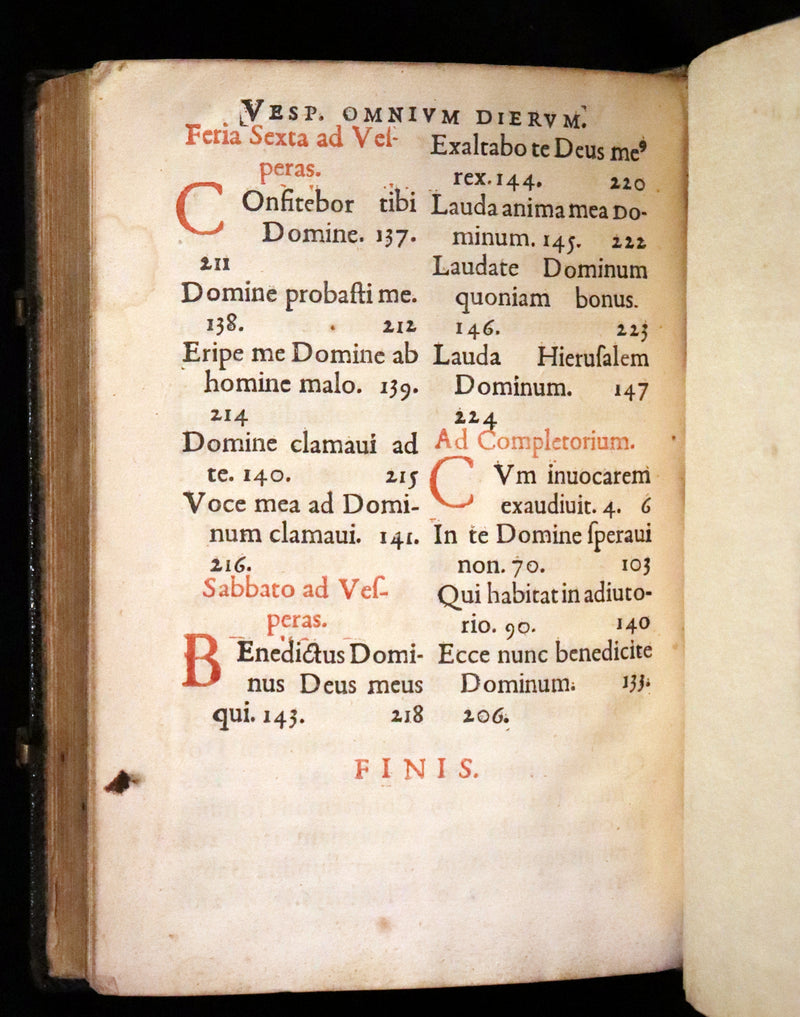 VESP. OMNIVM DIERVM.
Feria Sexta ad Veſ-
peras.
COnfitebor tibi
Domine. 137.
211
Domine probaſti me.
138. 212
Eripe me Domine ab
homine malo. 139.
214
Domine clamaui ad
te. 140. 215
Voce mea ad Domi-
num clamaui. 141.
216.
Sabbato ad Veſ-
peras.
BEnedictus Domi-
nus Deus meus
qui. 143. 218
Exaltabo te Deus meꝰ
rex. 144. 220
Lauda anima mea Do-
minum. 145. 222
Laudate Dominum
quoniam bonus.
146. 223
Lauda Hieruſalem
Dominum. 147
224
Ad Completorium.
CVm inuocarem
exaudiuit. 4. 6
In te Domine ſperaui
non. 70. 103
Qui habitat in adiuto-
rio. 90. 140
Ecce nunc benedicite
Dominum. 133.
206.
FINIS.